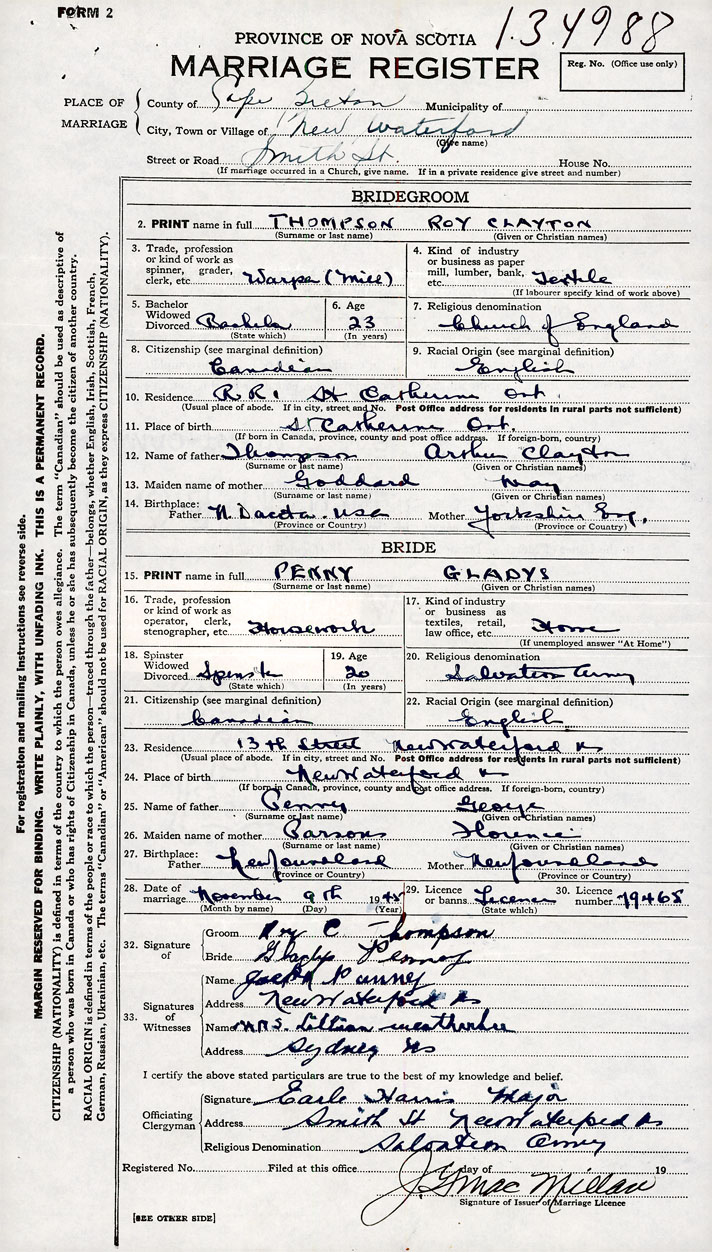 FORM 2
134988
PROVINCE OF NOVA SCOTIA
MARRIAGE REGISTER
Reg. No. (Office use only)
PLACE OF MARRIAGE
County of Cape Breton Municipality of
City, Town or Village of New Waterford
(Give name)
Street or Road Smith St. House No.
(If marriage occurred in a Church, give name. If in a private residence give street and number)
BRIDEGROOM
2. PRINT name in full THOMPSON ROY CLAYTON
(Surname or last name) (Given or Christian names)
3. Trade, profession or kind of work as spinner, grader, clerk, etc. Warper (Mill)
4. Kind of industry or business as paper mill, lumber, bank, etc. Textile
(If labourer specify kind of work above)
5. Bachelor Widowed Divorced Bachelor
(State which)
6. Age 23
(In years)
7. Religious denomination Church of England
8. Citizenship (see marginal definition) Canadian
9. Racial Origin (see marginal definition) English
10. Residence R R 1 St Catherine Ont.
(Usual place of abode. If in city, street and No. Post Office address for residents in rural parts not sufficient)
11. Place of birth St Catherine Ont.
(If born in Canada, province, county and post office address. If foreign-born, country)
12. Name of father Thompson Arthur Clayton
(Surname or last name) (Given or Christian names)
13. Maiden name of mother Goddard May
(Surname or last name) (Given or Christian names)
14. Birthplace: Father N. Dacota. USA Mother Yorkshire Eng.
(Province or Country) (Province or Country)
BRIDE
15. PRINT name in full PENNY GLADYS
(Surname or last name) (Given or Christian names)
16. Trade, profession or kind of work as operator, clerk, stenographer, etc. Housework
17. Kind of industry or business as textiles, retail, law office, etc. Home
(If unemployed answer "At Home")
18. Spinster Widowed Divorced Spinster
(State which)
19. Age 20
(In years)
20. Religious denomination Salvation Army
21. Citizenship (see marginal definition) Canadian
22. Racial Origin (see marginal definition) English
23. Residence 13th Street New Waterford NS
(Usual place of abode. If in city, street and No. Post Office address for residents in rural parts not sufficient)
24. Place of birth New Waterford NS
(If born in Canada, province, county and post office address. If foreign-born, country)
25. Name of father Penny George
(Surname or last name) (Given or Christian names)
26. Maiden name of mother Parsons Florence
(Surname or last name) (Given or Christian names)
27. Birthplace: Father Newfoundland Mother Newfoundland
(Province or Country) (Province or Country)
28. Date of marriage November 9th 1945
(Month by name) (Day) (Year)
29. Licence or banns License
(State which)
30. Licence number 79465
32. Signature of
Groom Roy C Thompson
Bride Gladys Penney
33. Signatures of Witnesses
Name Joseph
Address New Waterford NS
Name MRS. Lillian Weatherbee
Address Sydney NS
I certify the above stated particulars are true to the best of my knowledge and belief.
Officiating Clergyman
Signature Earle Harris Major
Address Smith St New Waterford NS
Religious Denomination Salvation Army
Registered No. Filed at this office day of 19
J. MacMillan
Signature of Issuer of Marriage Licence
[SEE OTHER SIDE]
For registration and mailing instructions see reverse side.
MARGIN RESERVED FOR BINDING. WRITE PLAINLY, WITH UNFADING INK. THIS IS A PERMANENT RECORD.
CITIZENSHIP (NATIONALITY) is defined in terms of the country to which the person owes allegiance. The term "Canadian" should be used as descriptive of
a person who was born in Canada or who has rights of Citizenship in Canada, unless he or she has subsequently become the citizen of another country.
RACIAL ORIGIN is defined in terms of the people or race to which the person—traced through the father—belongs, whether English, Irish, Scottish, French,
German, Russian, Ukrainian, etc. The terms "Canadian" or "American" should not be used for RACIAL ORIGIN, as they express CITIZENSHIP (NATIONALITY).